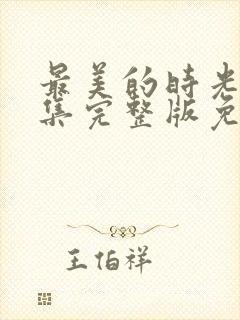 最美的时光
集完整版免
王伯祥